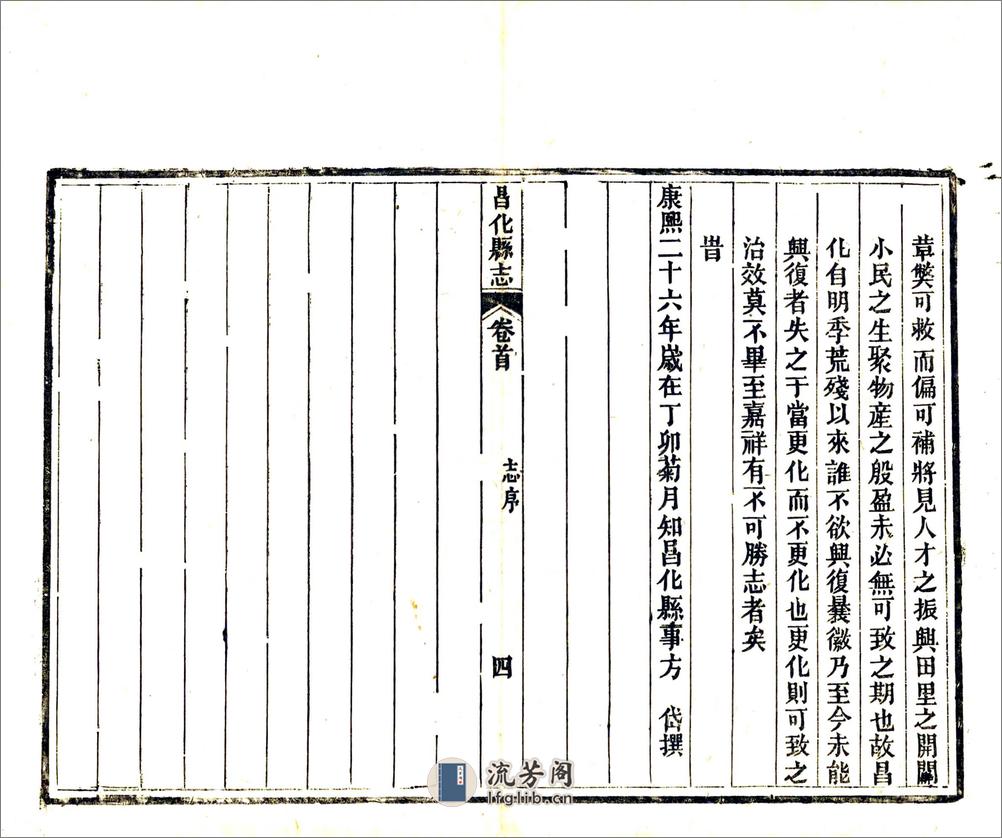 革獘可救而偏可補將見人才之振興田里之開闢
小民之生聚物產之殷盈未必無可致之期也故昌
化自明季荒殘以來誰不欲興復曩徽乃至今未能
興復者失之于當更化而不更化也更化則可致之
治效莫不畢至嘉祥有不可勝志者矣
旹
康熙二十六年歲在丁卯菊月知昌化縣事方 岱撰
昌化縣志 卷首 志序 四
流芳阁
lfglib.cn